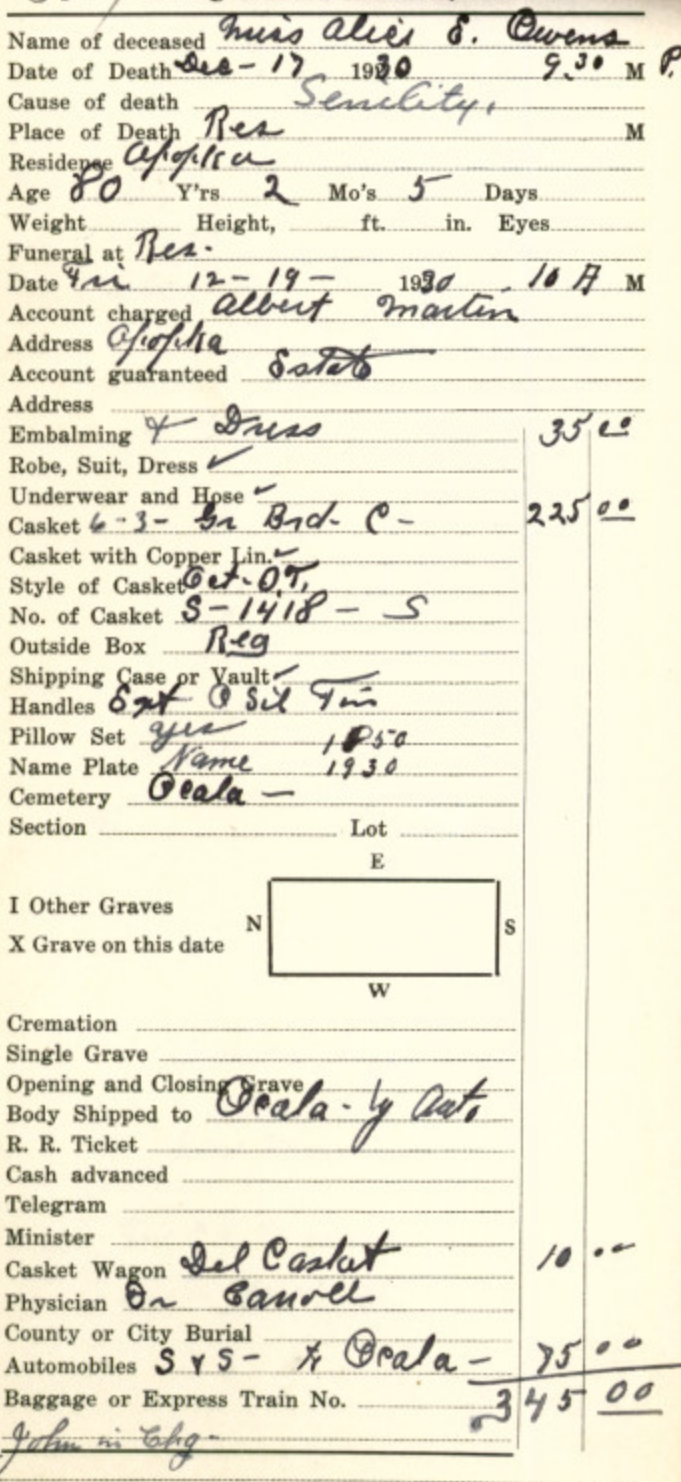 Name of deceased Miss Alice E. Owens
Date of Death Dec - 17 1930 9:30 M P.
Cause of death Senility.
Place of Death Res M
Residence Apopka
Age 80 Y'rs 2 Mo's 5 Days
Weight Height, ft. in. Eyes
Funeral at Res.
Date Fri 12 - 19 - 1930 10 A M
Account charged Albert Martin
Address Apopka
Account guaranteed Estate
Address
Embalming & Dress 35 00
Robe, Suit, Dress ✓
Underwear and Hose ✓
Casket 6-3- Gr Brd- C - 225 00
Casket with Copper Lin. ✓
Style of Casket Oct- O.T.
No. of Casket S-1418 - S
Outside Box Reg
Shipping Case or Vault ✓
Handles Ext Sil
Pillow Set yes 1850
Name Plate Name 1930
Cemetery Ocala -
Section Lot
E
I Other Graves
N S
X Grave on this date
W
Cremation
Single Grave
Opening and Closing Grave
Body Shipped to Ocala - by Auto
R. R. Ticket
Cash advanced
Telegram
Minister
Casket Wagon Del Casket 10 00
Physician Dr Carroll
County or City Burial
Automobiles S & S - to Ocala - 75 00
Baggage or Express Train No. 345 00
John in Chg -